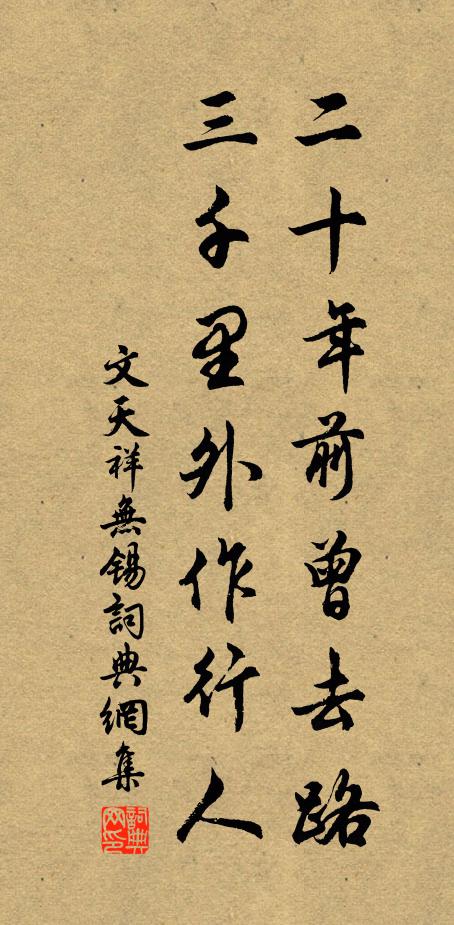 二十年前曾去路
三千里外作行人
文天祥無錫詞典網集
詞典网印